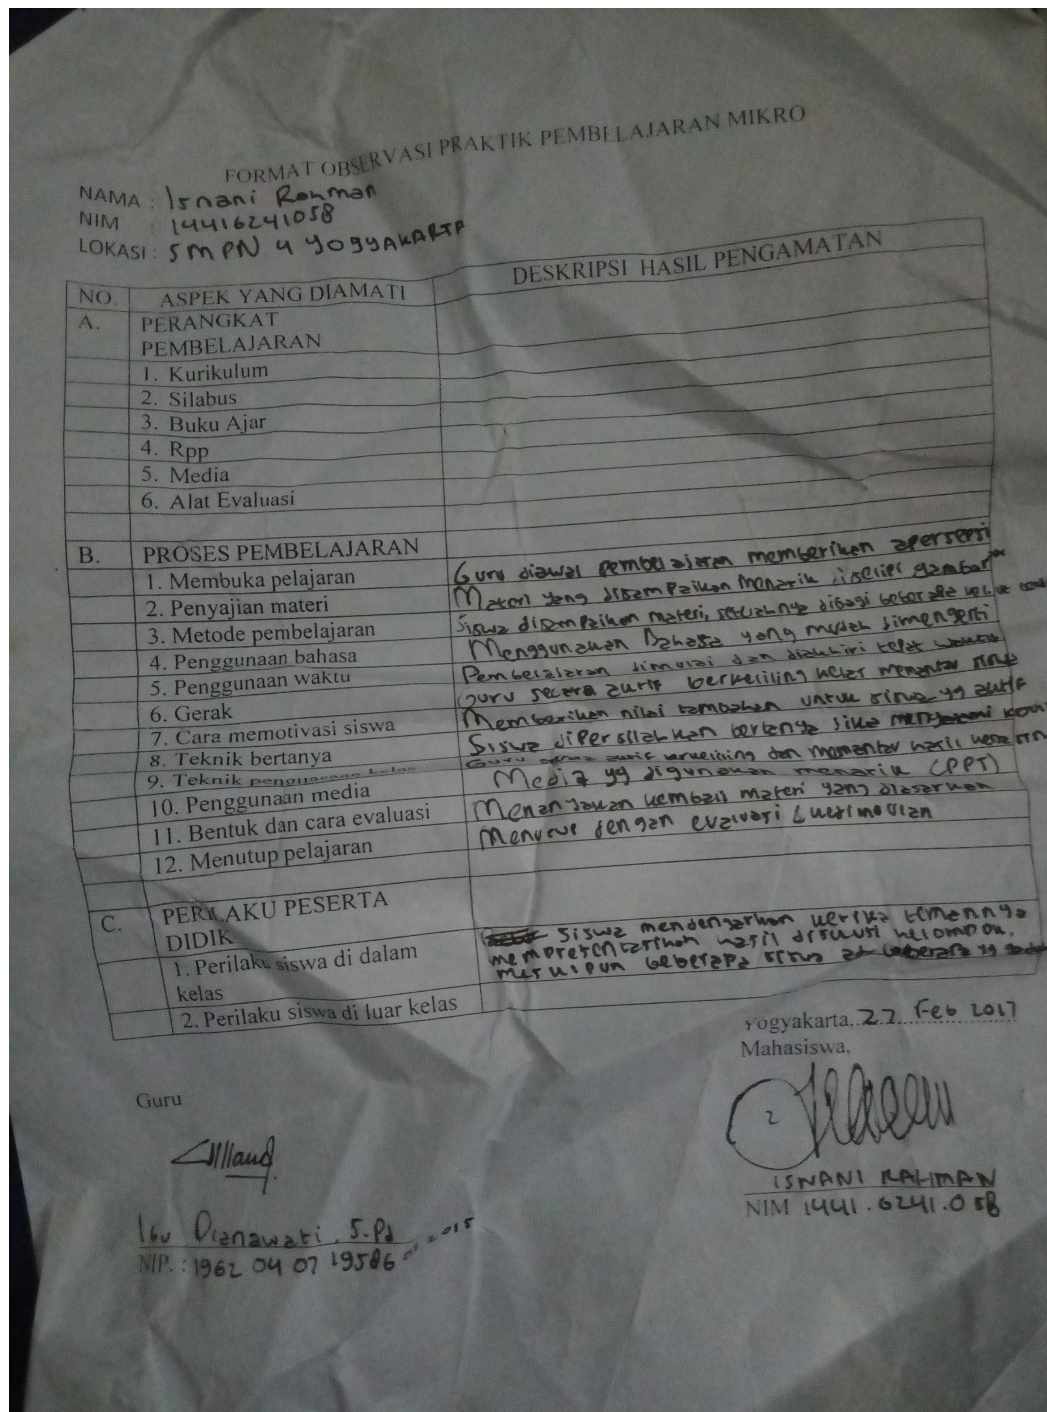 FORMAT OBSERVASI PRAKTIK PEMBELAJARAN MIKRO
NAMA : Isnani Rohman
NIM : 14416241058
LOKASI : SMPN 4 YOGYAKARTA
NO. ASPEK YANG DIAMATI DESKRIPSI HASIL PENGAMATAN
A. PERANGKAT
PEMBELAJARAN
1. Kurikulum
2. Silabus
3. Buku Ajar
4. Rpp
5. Media
6. Alat Evaluasi
B. PROSES PEMBELAJARAN
1. Membuka pelajaran Guru diawal pembelajaran memberikan apersepsi
2. Penyajian materi Materi yang disampaikan menarik diselipi gambar
3. Metode pembelajaran Siswa disampaikan materi, setelahnya dibagi beberapa
4. Penggunaan bahasa Menggunakan Bahasa yang mudah dimengerti
5. Penggunaan waktu Pembelajaran dimulai dan diakhiri tepat waktu
6. Gerak Guru secara aktif berkeliling kelas memantau siswa
7. Cara memotivasi siswa Memberikan nilai tambahan untuk siswa yg aktif
8. Teknik bertanya Siswa dipersilahkan bertanya jika mengalami
9. Teknik penguasaan kelas Guru secara aktif berkeliling dan memantau hasil kerja
10. Penggunaan media Media yg digunakan menarik (PPT)
11. Bentuk dan cara evaluasi Menanyakan kembali materi yang diajarkan
12. Menutup pelajaran Menutup dengan evaluasi & kesimpulan
C. PERILAKU PESERTA
DIDIK
1. Perilaku siswa di dalam
kelas
siswa mendengarkan ketika temannya
mempresentasikan hasil diskusi kelompok,
meskipun beberapa siswa
2. Perilaku siswa di luar kelas
Yogyakarta, 22 Feb 2017
Mahasiswa,
Guru
ISNANI RAHMAN
NIM 1441.6241.058
Ibu Dianawati, S.Pd
NIP. : 1962 04 07 19586